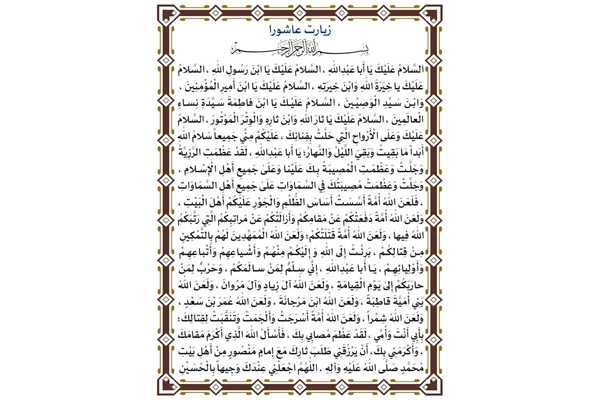 زیارت عاشورا
بسم الله الرحمن الرحیم
السَّلامُ عَلَيْكَ يَا أَبا عَبْدِاللهِ ، السَّلامُ عَلَيْكَ يَا ابْنَ رَسُولِ اللهِ ، السَّلامُ
عَلَيْكَ يا خِيَرَةَ اللهِ وَابْنَ خِيَرَتِهِ ، السَّلامُ عَلَيْكَ يَا ابْنَ أَميرِ الْمُؤْمِنينَ ،
وَابْنَ سَيِّدِ الْوَصِيّينَ ، السَّلامُ عَلَيْكَ يَا ابْنَ فاطِمَةَ سَيِّدَةِ نِساءِ
الْعالَمينَ ، السَّلامُ عَلَيْكَ يَا ثارَ اللهِ وَابْنَ ثارِهِ وَالْوِتْرَ الْمَوْتُورَ ، السَّلامُ
عَلَيْكَ وَعَلَى الْأَرْواحِ الَّتي حَلَّتْ بِفِنائِكَ ، عَلَيْكُمْ مِنّي جَميعاً سَلامُ اللهِ
أَبَداً مَا بَقِيتُ وَبَقِيَ اللَّيْلُ وَالنَّهارُ؛ يَا أَبا عَبْدِاللهِ ، لَقَدْ عَظُمَتِ الرَّزِيَّةُ
وَجَلَّتْ وَعَظُمَتِ الْمُصيبَةُ بِكَ عَلَيْنا وَعَلَىٰ جَمِيعِ أَهْلِ الْإِسْلامِ ،
وَجَلَّتْ وَعَظُمَتْ مُصيبَتُكَ فِي السَّمَاوَاتِ عَلَىٰ جَميعِ أَهْلِ السَّمَاوَاتِ
، فَلَعَنَ اللهُ أُمَّةً أَسَّسَتْ أَساسَ الظُّلْمِ وَالْجَوْرِ عَلَيْكُمْ أَهْلَ الْبَيْتِ ،
وَلَعَنَ اللهُ أُمَّةً دَفَعَتْكُمْ عَنْ مَقامِكُمْ وَأَزالَتْكُمْ عَنْ مَراتِبِكُمُ الَّتي رَتَّبَكُمُ
اللهُ فيها ، وَلَعَنَ اللهُ أُمَّةً قَتَلَتْكُمْ؛ وَلَعَنَ اللهُ الْمُمَهِّدينَ لَهُمْ بِالتَّمْكينِ
مِنْ قِتالِكُمْ ، بَرِئْتُ إِلَى اللهِ وَ إِلَيْكُمْ مِنْهُمْ وَأَشْياعِهِمْ وَأَتْباعِهِمْ
وَأَوْلِيائِهِمْ ، يَا أَبا عَبْدِاللهِ ، إِنّي سِلْمٌ لِمَنْ سالَمَكُمْ ، وَحَرْبٌ لِمَنْ
حارَبَكُمْ إِلىٰ يَوْمِ الْقِيامَةِ ، وَلَعَنَ اللهُ آلَ زِيادٍ وَآلَ مَرْوانَ ، وَلَعَنَ اللهُ
بَنِي أُمَيَّةَ قاطِبَةً ، وَلَعَنَ اللهُ ابْنَ مَرْجانَةَ ، وَلَعَنَ اللهُ عُمَرَ بْنَ سَعْدٍ ،
وَلَعَنَ اللهُ شِمْراً ، وَلَعَنَ اللهُ أُمَّةً أَسْرَجَتْ وَأَلْجَمَتْ وَتَنَقَّبَتْ لِقِتالِكَ؛
بِأَبي أَنْتَ وَأُمّي ، لَقَدْ عَظُمَ مُصابي بِكَ ، فَأَسْأَلُ اللهَ الَّذي أَكْرَمَ مَقامَكَ
، وَأَكْرَمَني بِكَ، أَنْ يَرْزُقَني طَلَبَ ثارِكَ مَعَ إِمامٍ مَنْصُورٍ مِنْ أَهْلِ بَيْتِ
مُحَمَّدٍ صَلَّى اللهُ عَلَيْهِ وَآلِهِ . اللَّهُمَّ اجْعَلْني عِنْدَكَ وَجيهاً بِالْحُسَيْنِ